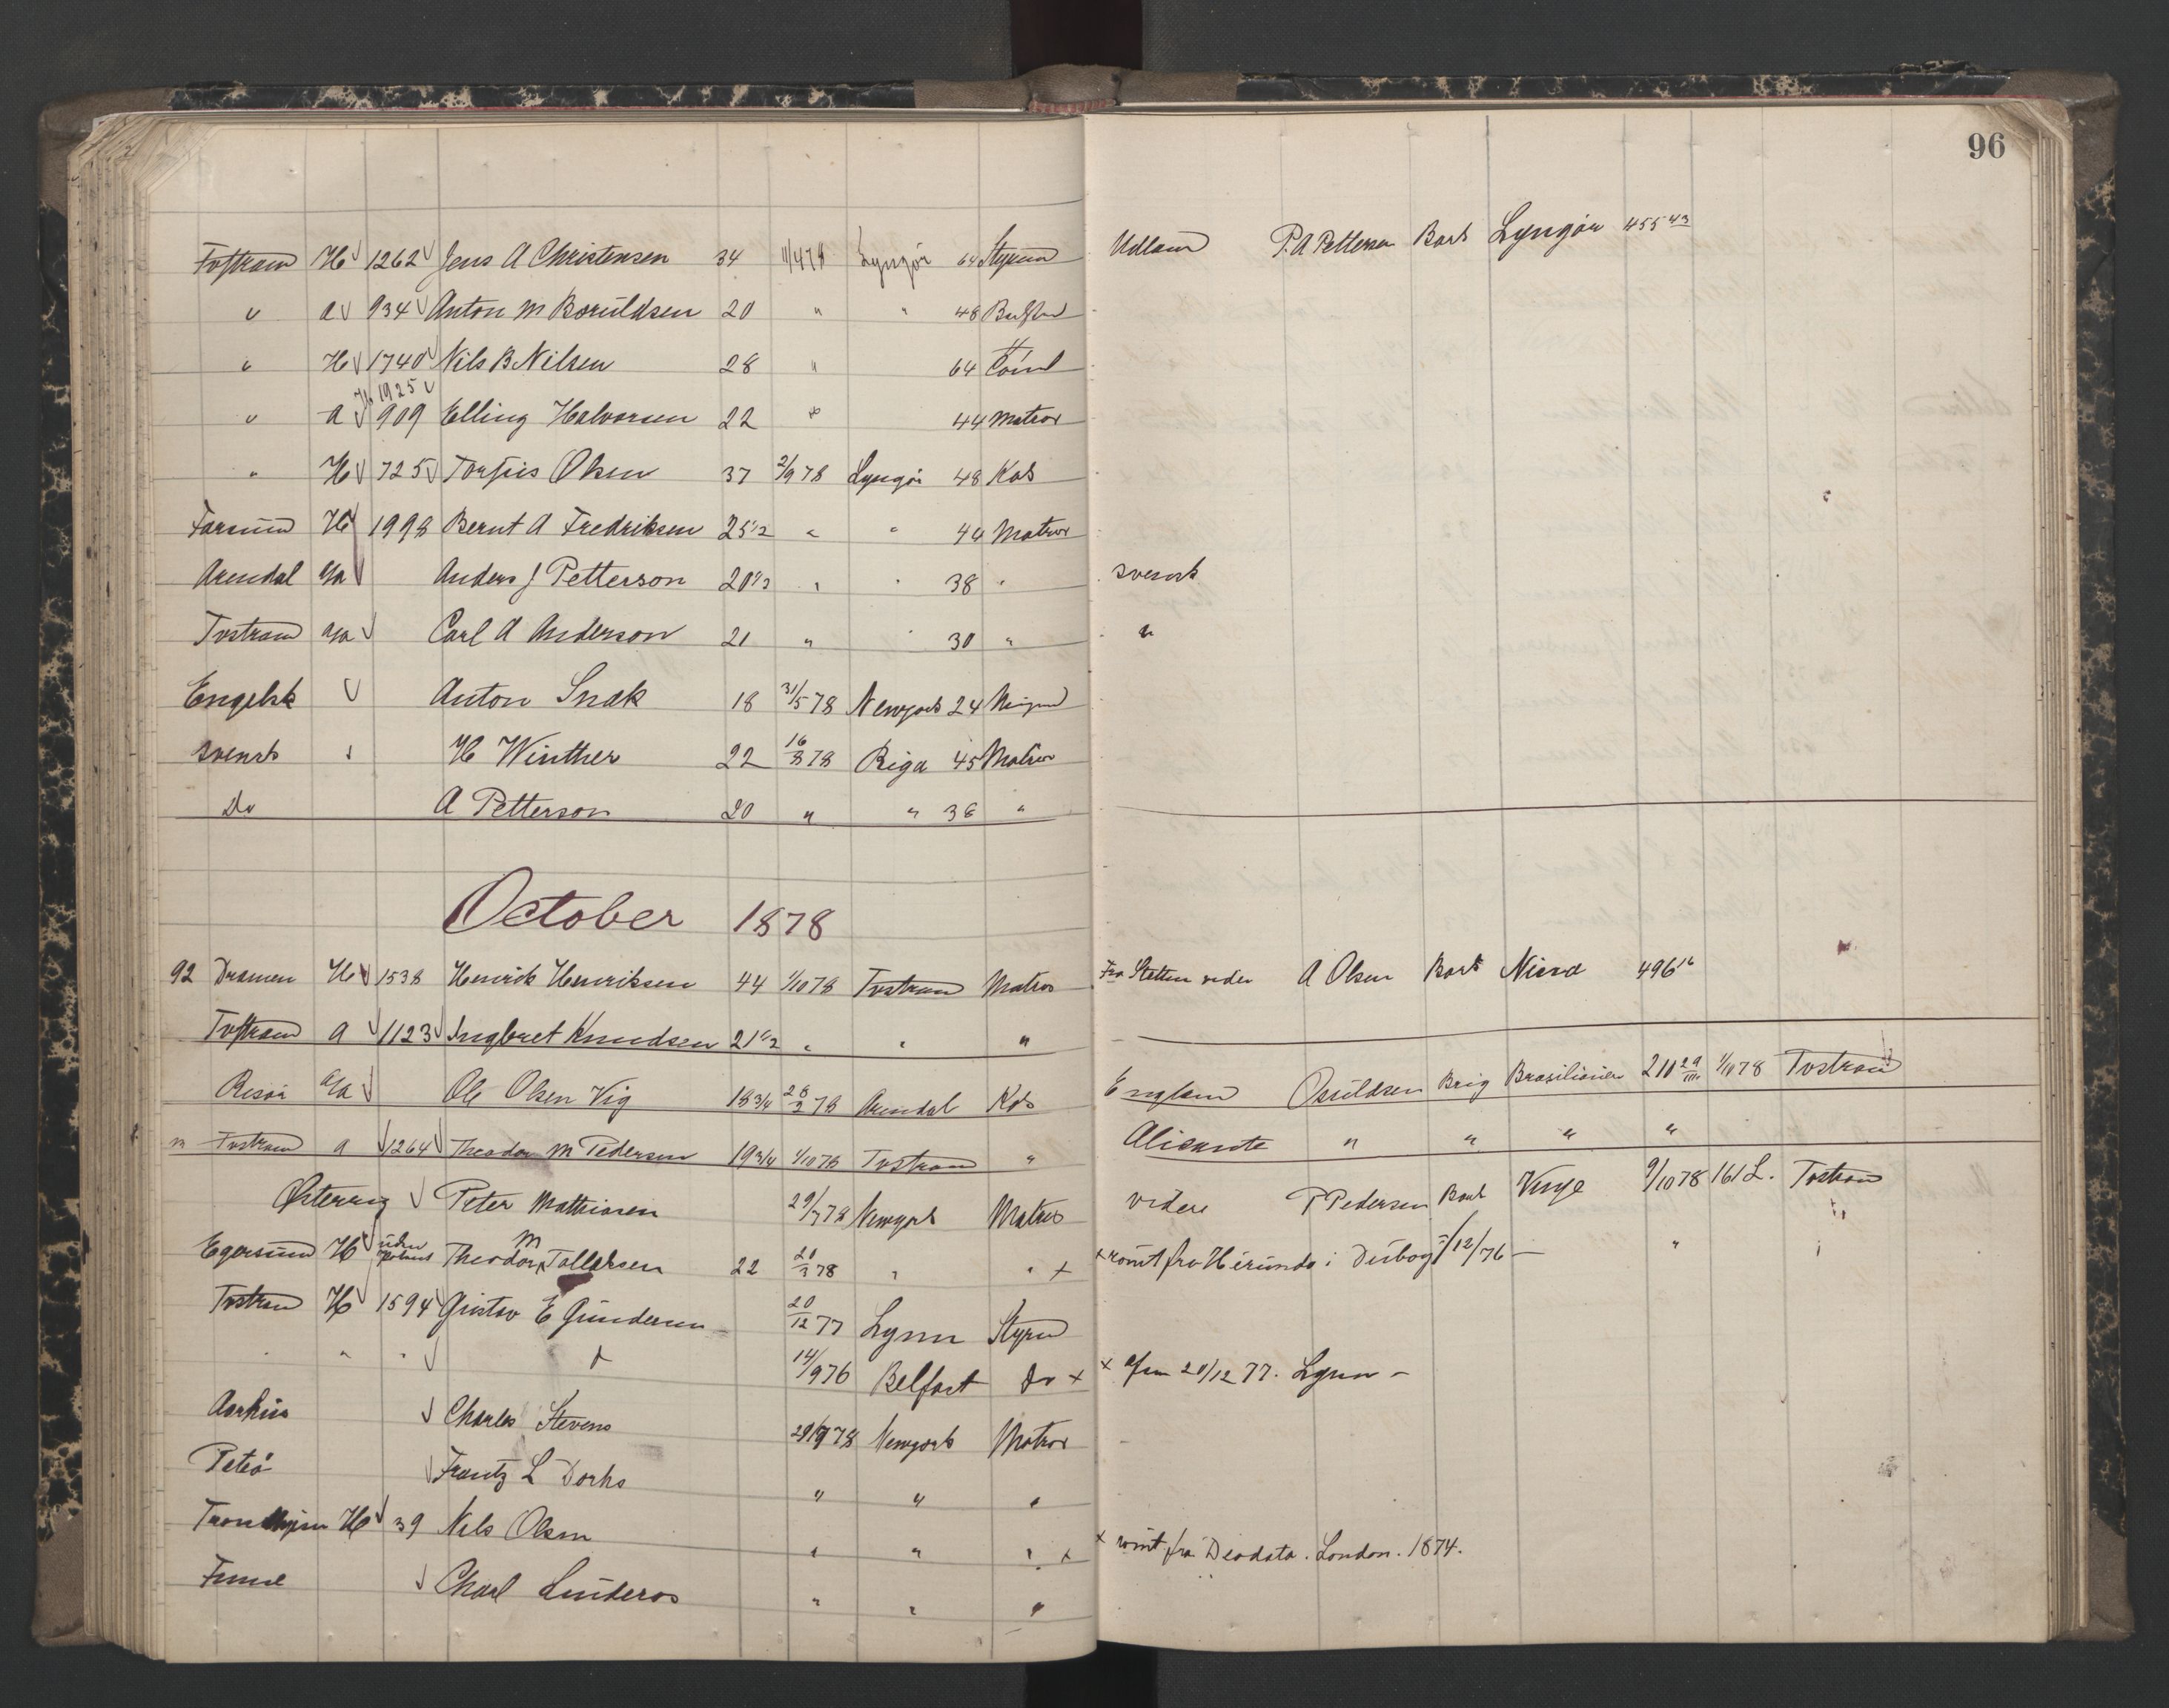 96
Tvstrand H 1262 Jens A Christensen 34 11/4 78 Lyngør 64 Styrmd Udland P. A Petterson Bark Lyngør 455 43
" a 934 Anton M Boruldsen 20 " " 48
" H 1740 Nils B Nilsen 28 " 64 Tøml
H 1925
" a 909 Elling Halvorsen 22 " 44 Matros
" H 725 Torjus Olsen 37 2/9 78 Lyngør 48 Kok
Farsund H 1998 Bernt A Fredriksen 25 1/2 " " 44 Matros
Arendal Anders J Petterson 20 1/2 " " 38 " svensk
Tvstrand Carl A Anderson 21 " " 30 " "
Engelsk Anton Snak 18 31/5 78 Newyork 24
svensk H Winther 22 16/8 78 Riga 45 Matros
Do A Petterson 20 " " 38 "
October 1878
92 Dramen H 1538 Henrik Henriksen 44 1/10 78 Tvstrand Matros Fra Stettin videre A Olsen Bark Niord 496 16
Tvstrand a 1123 Ingbret Knudsen 21 1/2 " " "
Risør Ole Olsen Vig 18 3/4 28/3 78 Arendal Kok England Osuldsen Brig Brasilianer 210 1/10 78 Tvstrand
Tvstrand a 1264 Theodor M Pedersen 19 3/4 1/10 78 Tvstrand " Alicante " " " "
Østerrig Peter Mathiasen 29/7 78 Newyork Matros videre P Pedersen Bark Verge 9/10 78 161 L. Tvstrand
Egersund H uden Patent Theodor M Tallaksen 22 20/3 78 " " x x römt fra Hirundo i 12/76 — "
Tvstrand H 1594 Gustav E Gundersen 20/12 77 Lynn Styrmd
" " " 14/9 76 Belfast do x x afm 20/12 77. Lynn -
Aarhus Charles Stevens 29/7 78 Newyork Matros
Frantz L Dorks " " "
Trondhjem H 39 Nils Olsen " " " x x römt fra Deodata. London. 1874.
Charl Linderos " " "